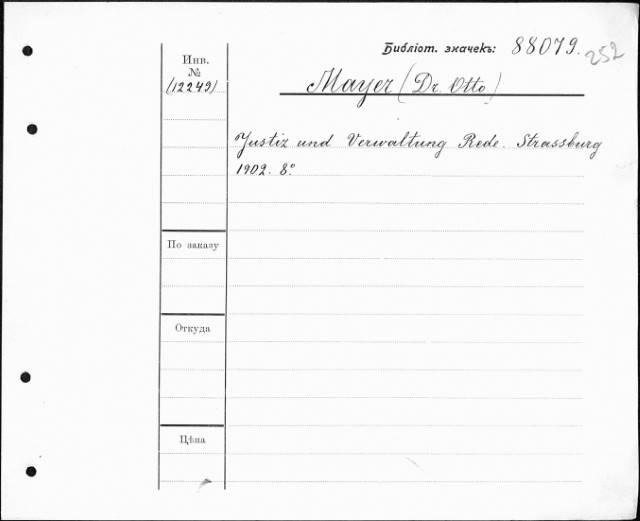 Библіот. значекъ: 88079. 252
Инв.
№
(12249)
Mayer (Dr. Otto)
Justiz und Verwaltung Rede. Strassburg
1902. 8º.
По заказу
Откуда
Цѣна